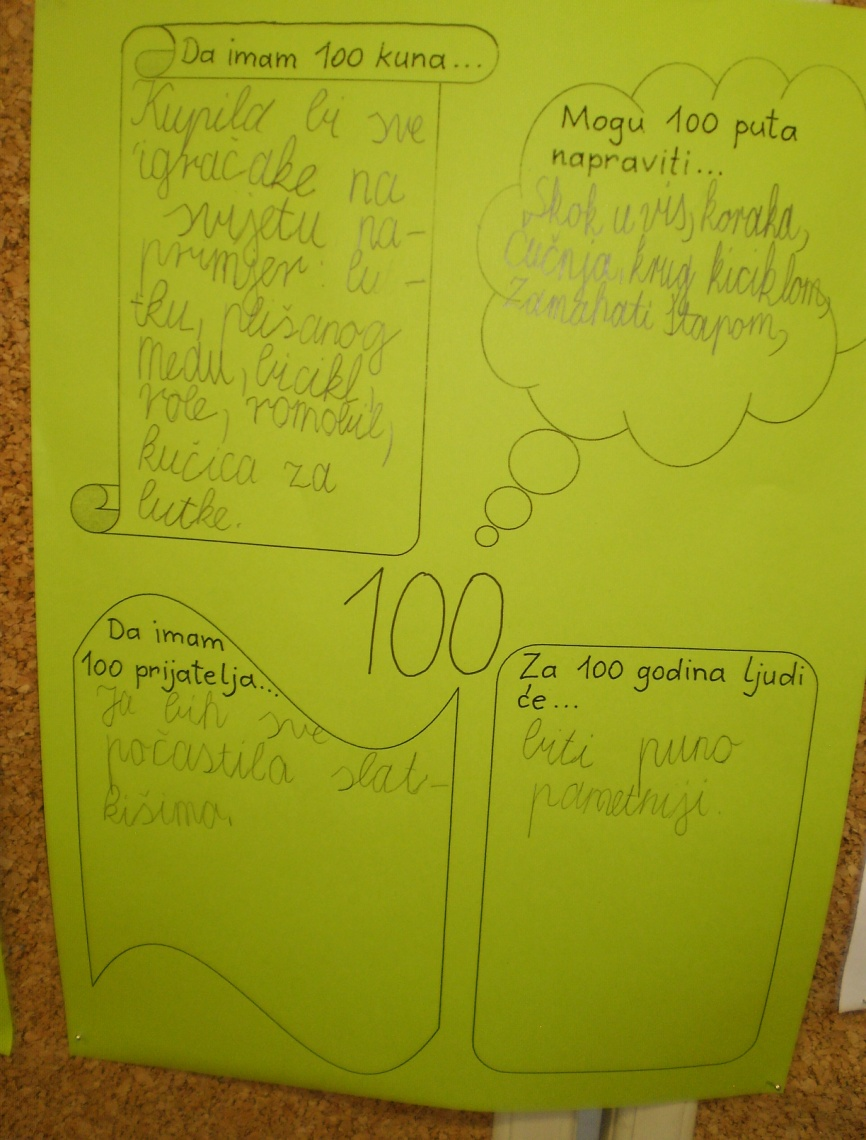 Da imam 100 kuna...
Kupila bi sve
igračake na
svijetu na-
primjer: lu-
tku, plišanog
medu, bicikl,
role, romobil,
kućica za
lutke.
Mogu 100 puta
napraviti...
Skok u vis, koraka,
Čučnja, krug biciklom,
Zamahati štapom,
100
Da imam
100 prijatelja...
Ja bih sve
počastila slat-
kišima.
Za 100 godina ljudi
će...
biti puno
pametniji.